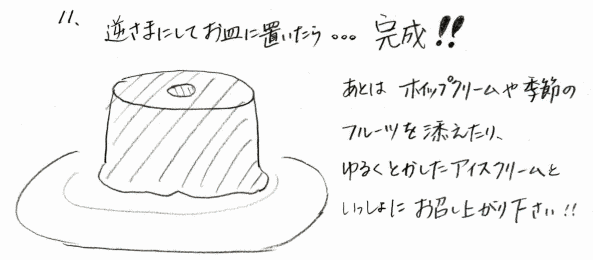 11、 逆さまにしてお皿に置いたら... 完成!!
あとは ホイップクリームや季節の
フルーツを添えたり、
ゆるくとかしたアイスクリームと
いっしょに お召し上がり下さい!!